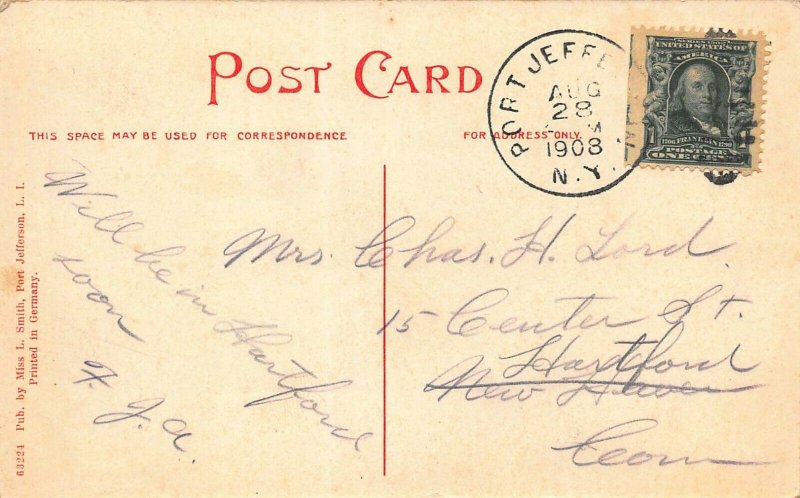 POST CARD
THIS SPACE MAY BE USED FOR CORRESPONDENCE
FOR ADDRESS ONLY.
PORT JEFFE
AUG
28
M
1908
N.Y.
SERIES 1902
UNITED STATES OF
AMERICA
1706 FRANKLIN 1790
POSTAGE
1 ONE CENT
Will be in Hartford
soon
F. J. A.
Mrs. Chas. H. Lord.
15 Center St.
Hartford
New Haven
Conn
63224 Pub. by Miss L. Smith, Port Jefferson, L. I.
Printed in Germany.